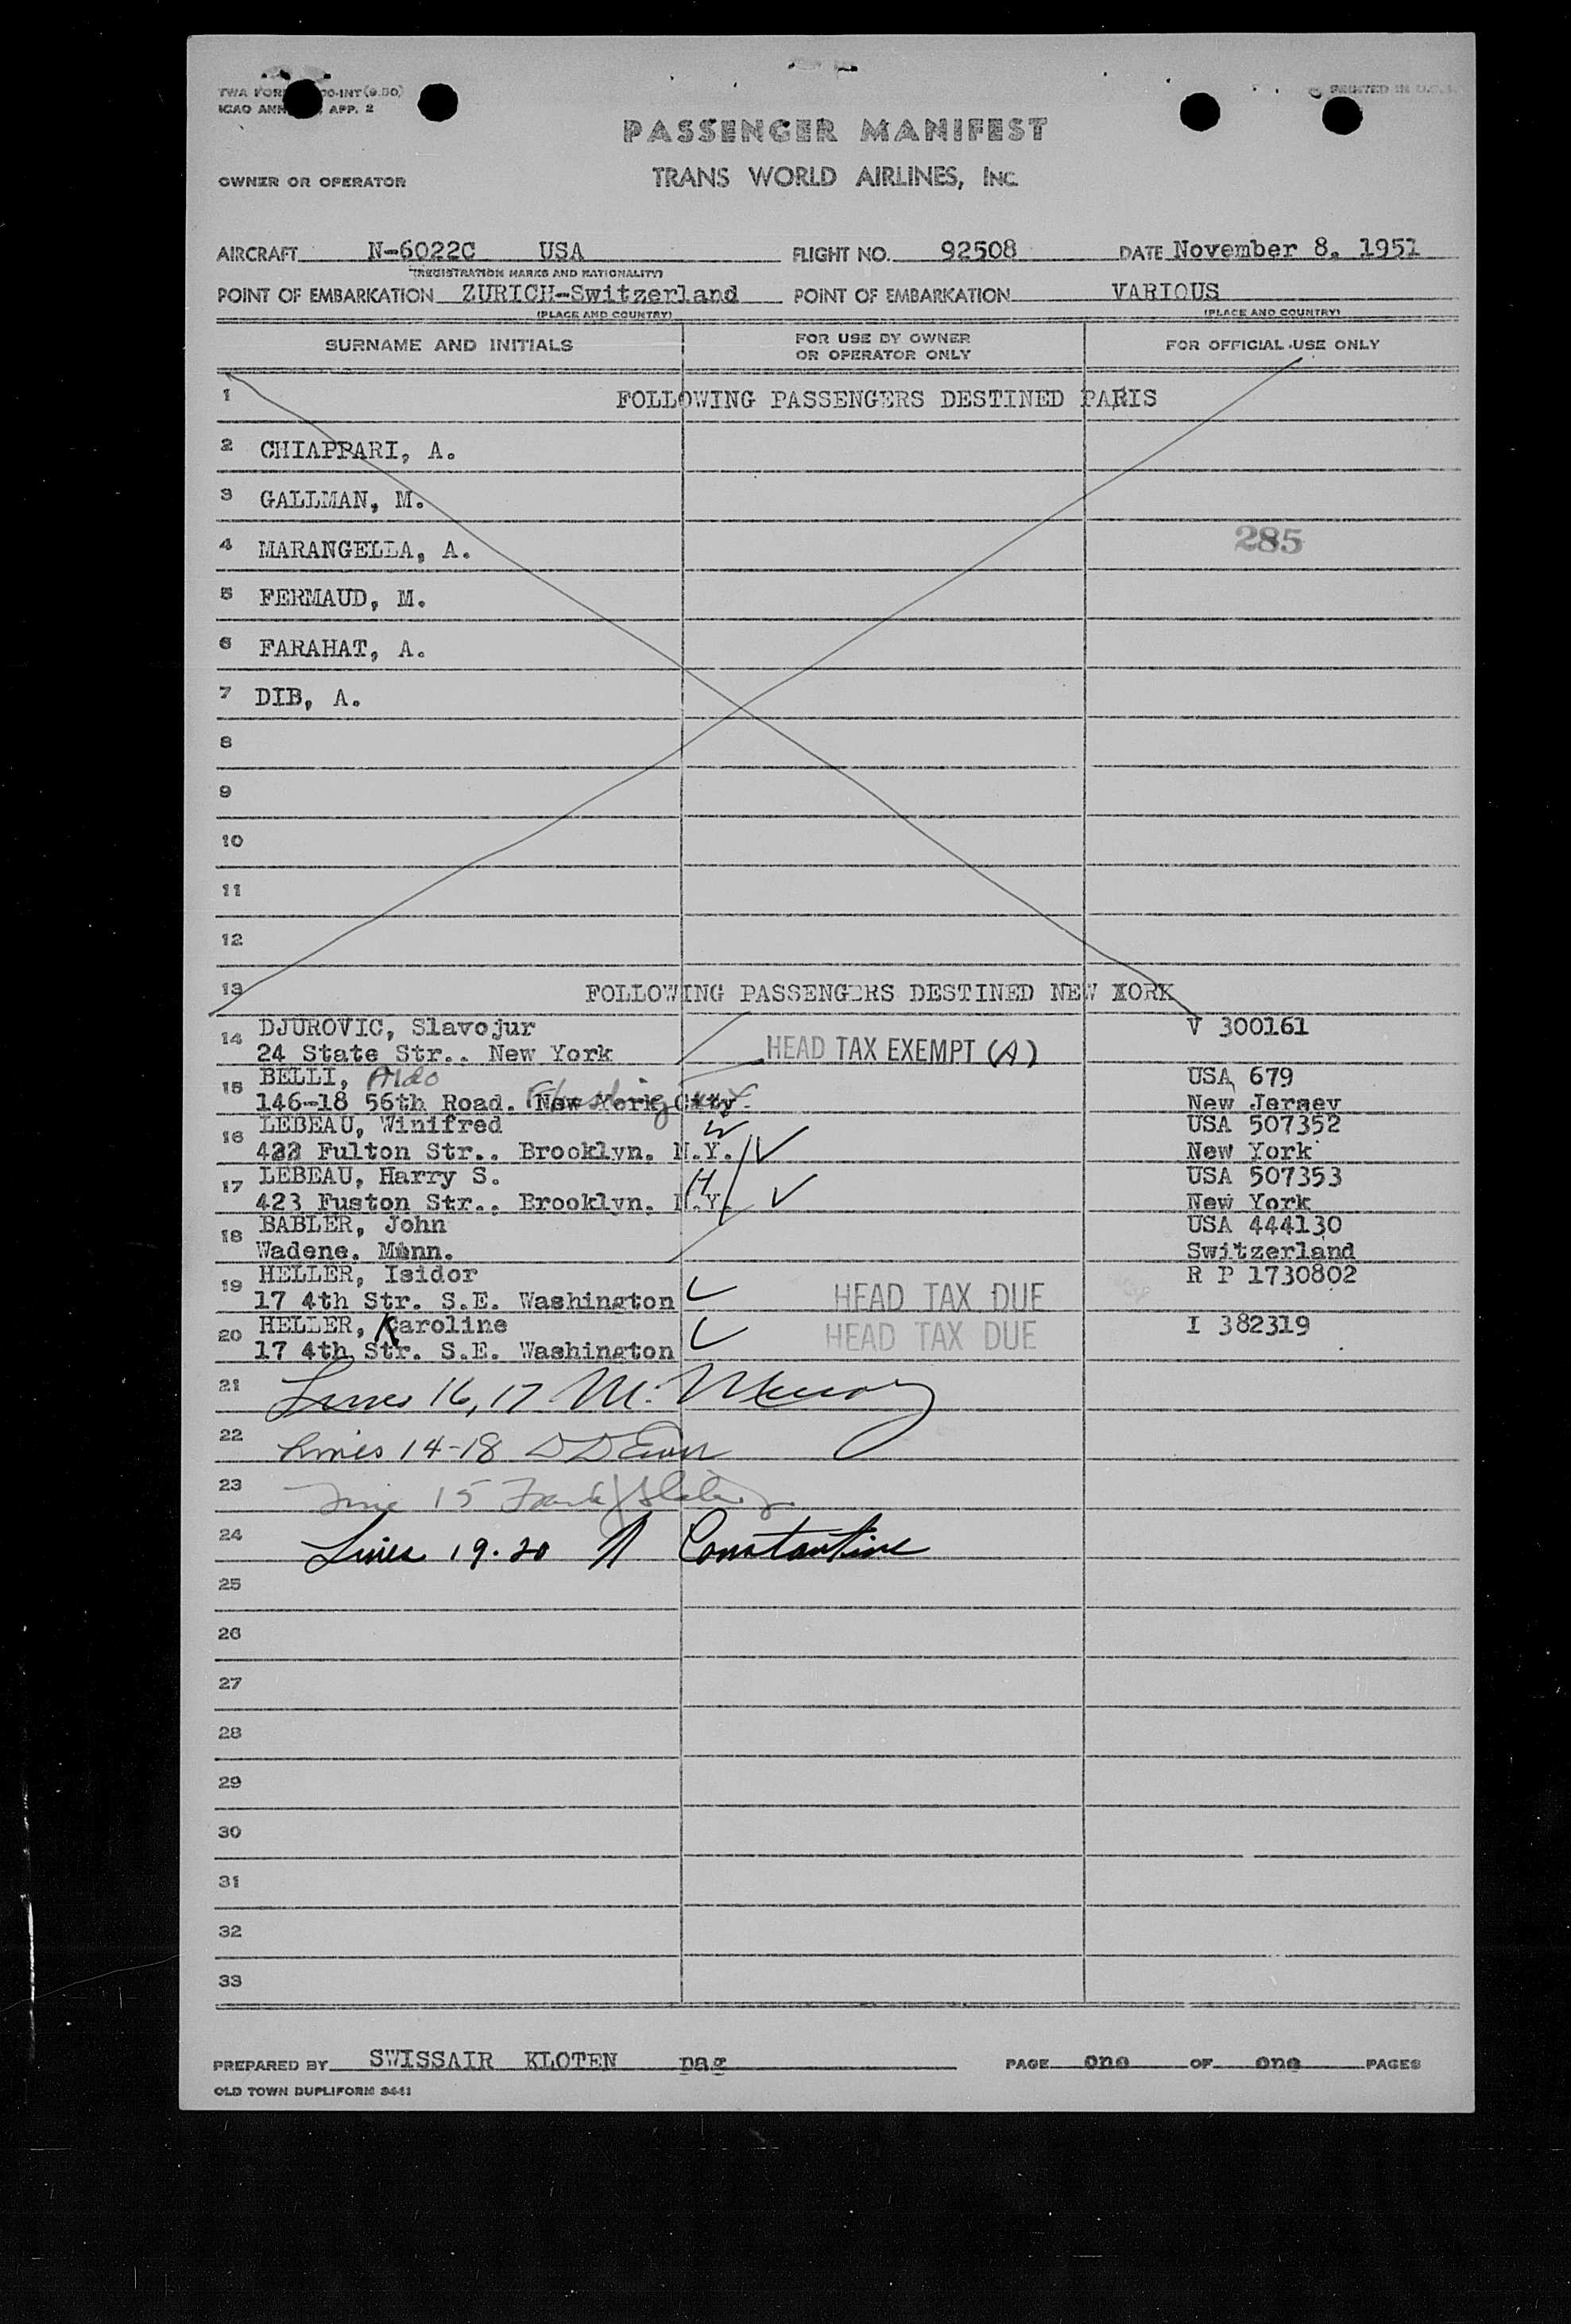 TWA FORM 00-INT (9.50)
ICAO ANN APP. 2
PRINTED IN U.S.A.
PASSENGER MANIFEST
OWNER OR OPERATOR TRANS WORLD AIRLINES, INC.
AIRCRAFT N-6022C USA FLIGHT NO. 92508 DATE November 8, 1951
(REGISTRATION MARKS AND NATIONALITY)
POINT OF EMBARKATION ZURICH-Switzerland POINT OF EMBARKATION VARIOUS
(PLACE AND COUNTRY) (PLACE AND COUNTRY)
SURNAME AND INITIALS FOR USE BY OWNER OR OPERATOR ONLY FOR OFFICIAL USE ONLY
1 FOLLOWING PASSENGERS DESTINED PARIS
2 CHIAPPARI, A.
3 GALLMAN, M.
4 MARANGELLA, A. 285
5 FERMAUD, M.
6 FARAHAT, A.
7 DIB, A.
8
9
10
11
12
13 FOLLOWING PASSENGERS DESTINED NEW YORK
14 DJUROVIC, Slavojur V 300161
24 State Str.. New York HEAD TAX EXEMPT (A)
15 BELLI, Aldo USA 679
146-18 56th Road. New York City Flushing New Jersey
16 LEBEAU, Winifred W USA 507352
423 Fulton Str.. Brooklyn. N.Y. New York
17 LEBEAU, Harry S. H USA 507353
423 Fuston Str.. Brooklyn. N.Y. New York
18 BABLER, John USA 444130
Wadene. Minn. Switzerland
19 HELLER, Isidor R P 1730802
17 4th Str. S.E. Washington HEAD TAX DUE
20 HELLER, Karoline I 382319
17 4th Str. S.E. Washington HEAD TAX DUE
21 Lines 16, 17 M.
22 Lines 14-18 D D
23 Line 15 Frank
24 Lines 19-20 N Constantine
25
26
27
28
29
30
31
32
33
PREPARED BY SWISSAIR KLOTEN pag PAGE one OF one PAGES
OLD TOWN DUPLIFORM 9441